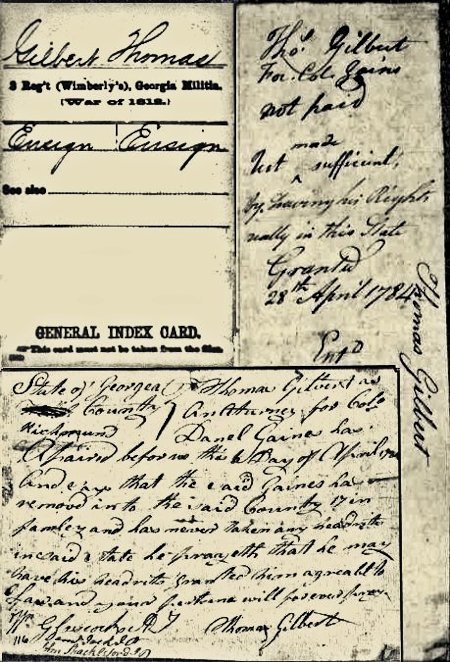 Gilbert, Thomas
3 Reg't (Wimberly's), Georgia Militia.
(War of 1812.)
Ensign | Ensign
See also
GENERAL INDEX CARD.
This card must not be taken from the files
Thos. Gilbert
For Col. Gains
not paid
made
Not ^ sufficient;
by Leaving his Rights
really in this State
Granted
28th April 1784
Entd
Thomas Gilbert
State of Georgea Thomas Gilbert as
County An Atturney for Colo
Richmund Danel Gaines has
before me this 6 Day of April
and that the said Gaines has
remood into the said County 17 in
famley and has never taken any headrite
in said State he prayeth that he may
have his headrite granted him agreable to
law and your will forever pray
116 Thomas Gilbert